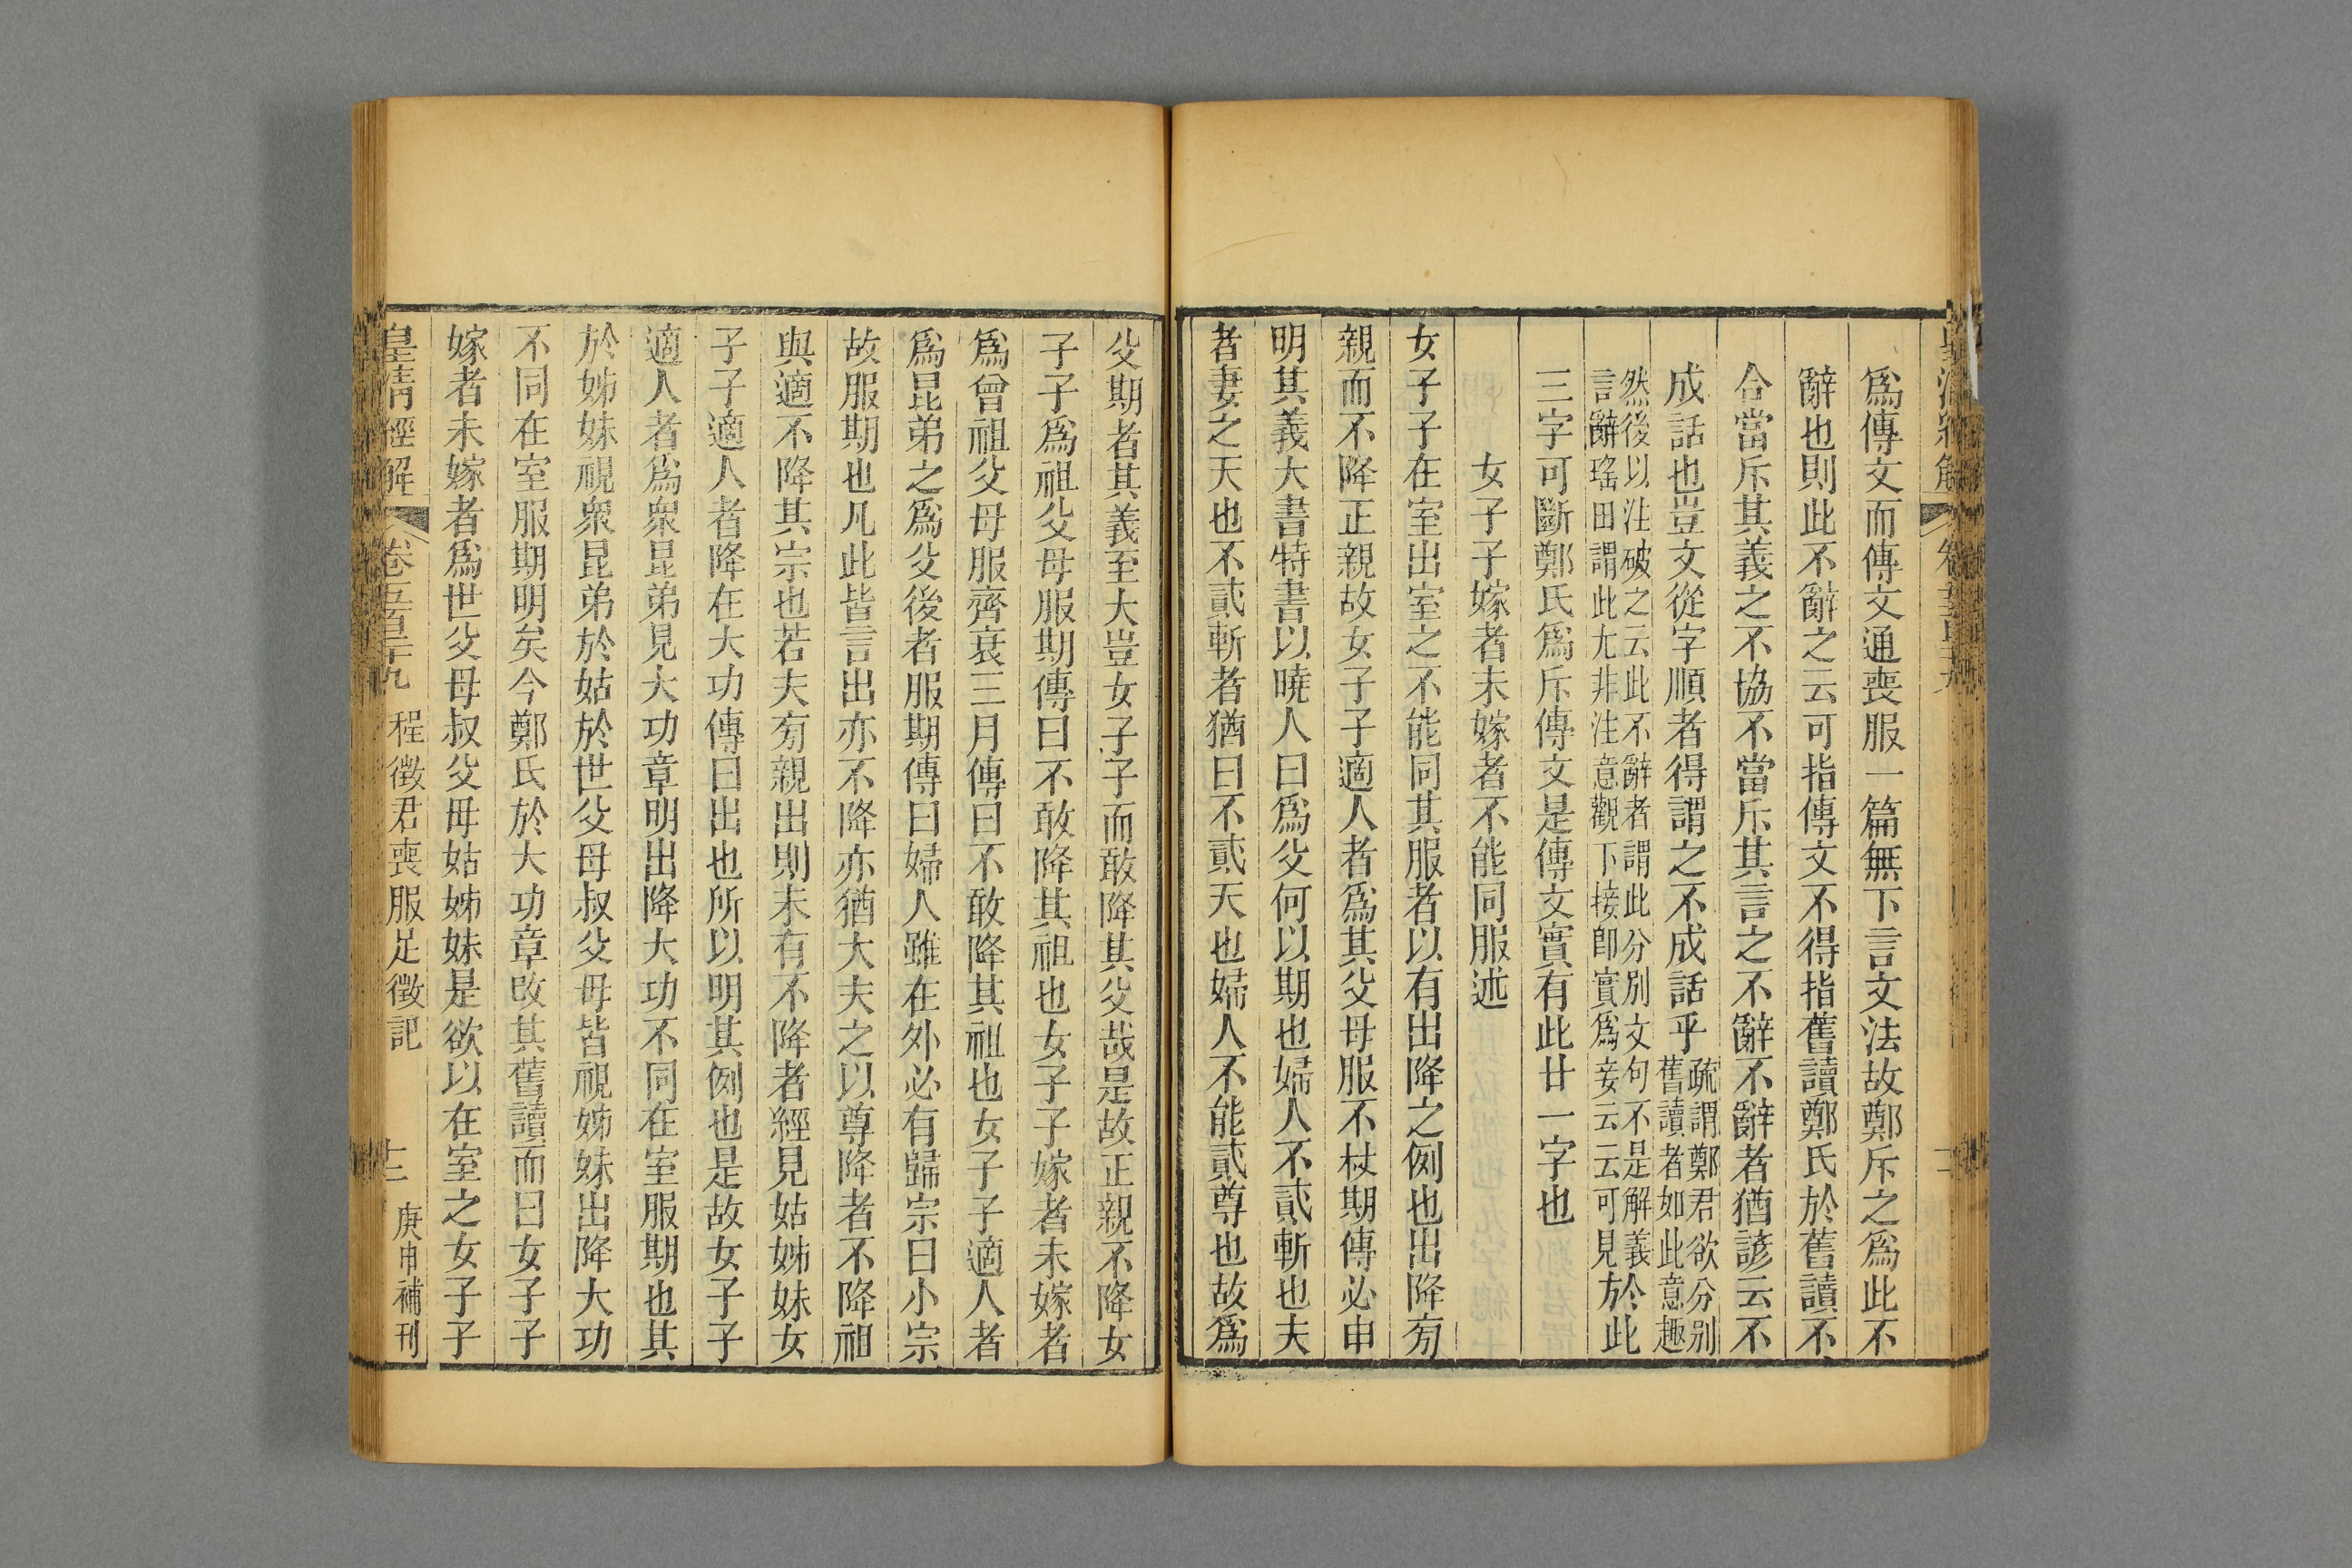 爲傳文而傳文通喪服一篇無下言文法故鄭斥之爲此不
辭也則此不辭之云可指傳文不得指舊讀鄭氏於舊讀不
合當斥其義之不協不當斥其言之不辭不辭者猶諺云不
成話也豈文從字順者得謂之不成話乎疏謂鄭君欲分别舊讀者如此意趣
然後以注破之云此不辭者謂此分別文句不是解義
言辭瑤田謂此尢非注意觀下接卽實爲妾云云可見於此
三字可斷鄭氏爲斥傳文是傳文實有此廿一字也
女子子嫁者未嫁者不能同服述
女子子在室出室之不能同其服者以有出降之例也出降旁
親而不降正親故女子子適人者爲其父母服不杖期傳必申
明其義大書特書以曉人曰爲父何以期也婦人不貳斬也夫
者妻之天也不貳斬者猶曰不貳天也婦人不能貳尊也故爲
父期者其義至大豈女子子而敢降其父哉是故正親不降女
子子爲祖父母服期傳曰不敢降其祖也女子子嫁者未嫁者
爲曾祖父母服齊衰三月傳曰不敢降其祖也女子子適人者
爲昆弟之爲父後者服期傳曰婦人雖在外必有歸宗曰小宗
故服期也凡此皆言出亦不降亦猶大夫之以尊降者不降祖
與適不降其宗也若夫旁親出則未有不降者經見姑姊妹女
子子適人者降在大功傳曰出也所以明其例也是故女子子
適人者爲衆昆弟見大功章明出降大功不同在室服期也其
於姊妹視衆昆弟於姑於世父母叔父母皆視姊妹出降大功
不同在室服期明矣今鄭氏於大功章改其舊讀而曰女子子
嫁者未嫁者爲世父母叔父母姑姊妹是欲以在室之女子子
皇清經解 卷五百三十九 程徵君喪服足徵記 十二 庚申補刊